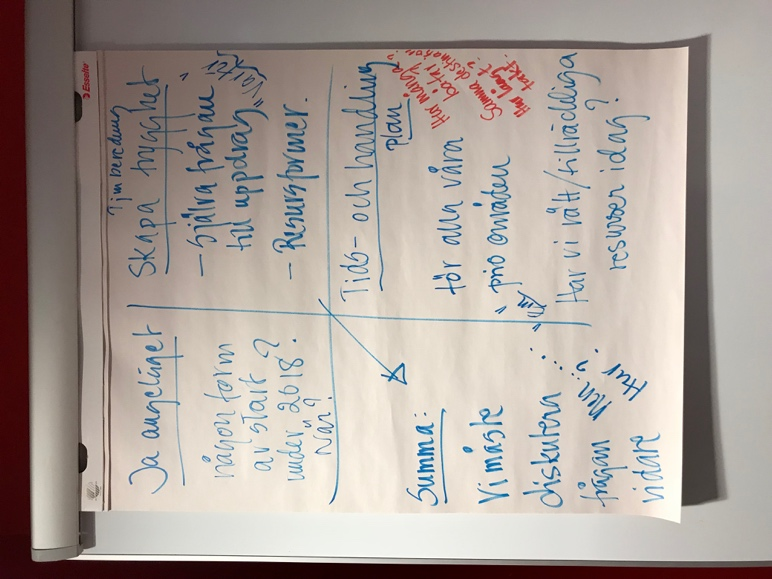 Esselte
Ja angeläget
någon form
av start ?
under 2018.
När?
? jm beredning
Skapa trygghet
- Själva frågan
till uppdrag "Varför"
- Resursformer.
Summa:
Vi måste
diskutera .....
frågan
vidare
Hur
Tids- och handling
plan
för alla våra
prio områden
Har vi rätt/tillräckliga
resurser idag?
Hur många
båtar?
Samma destination?
Hur långt
takt?